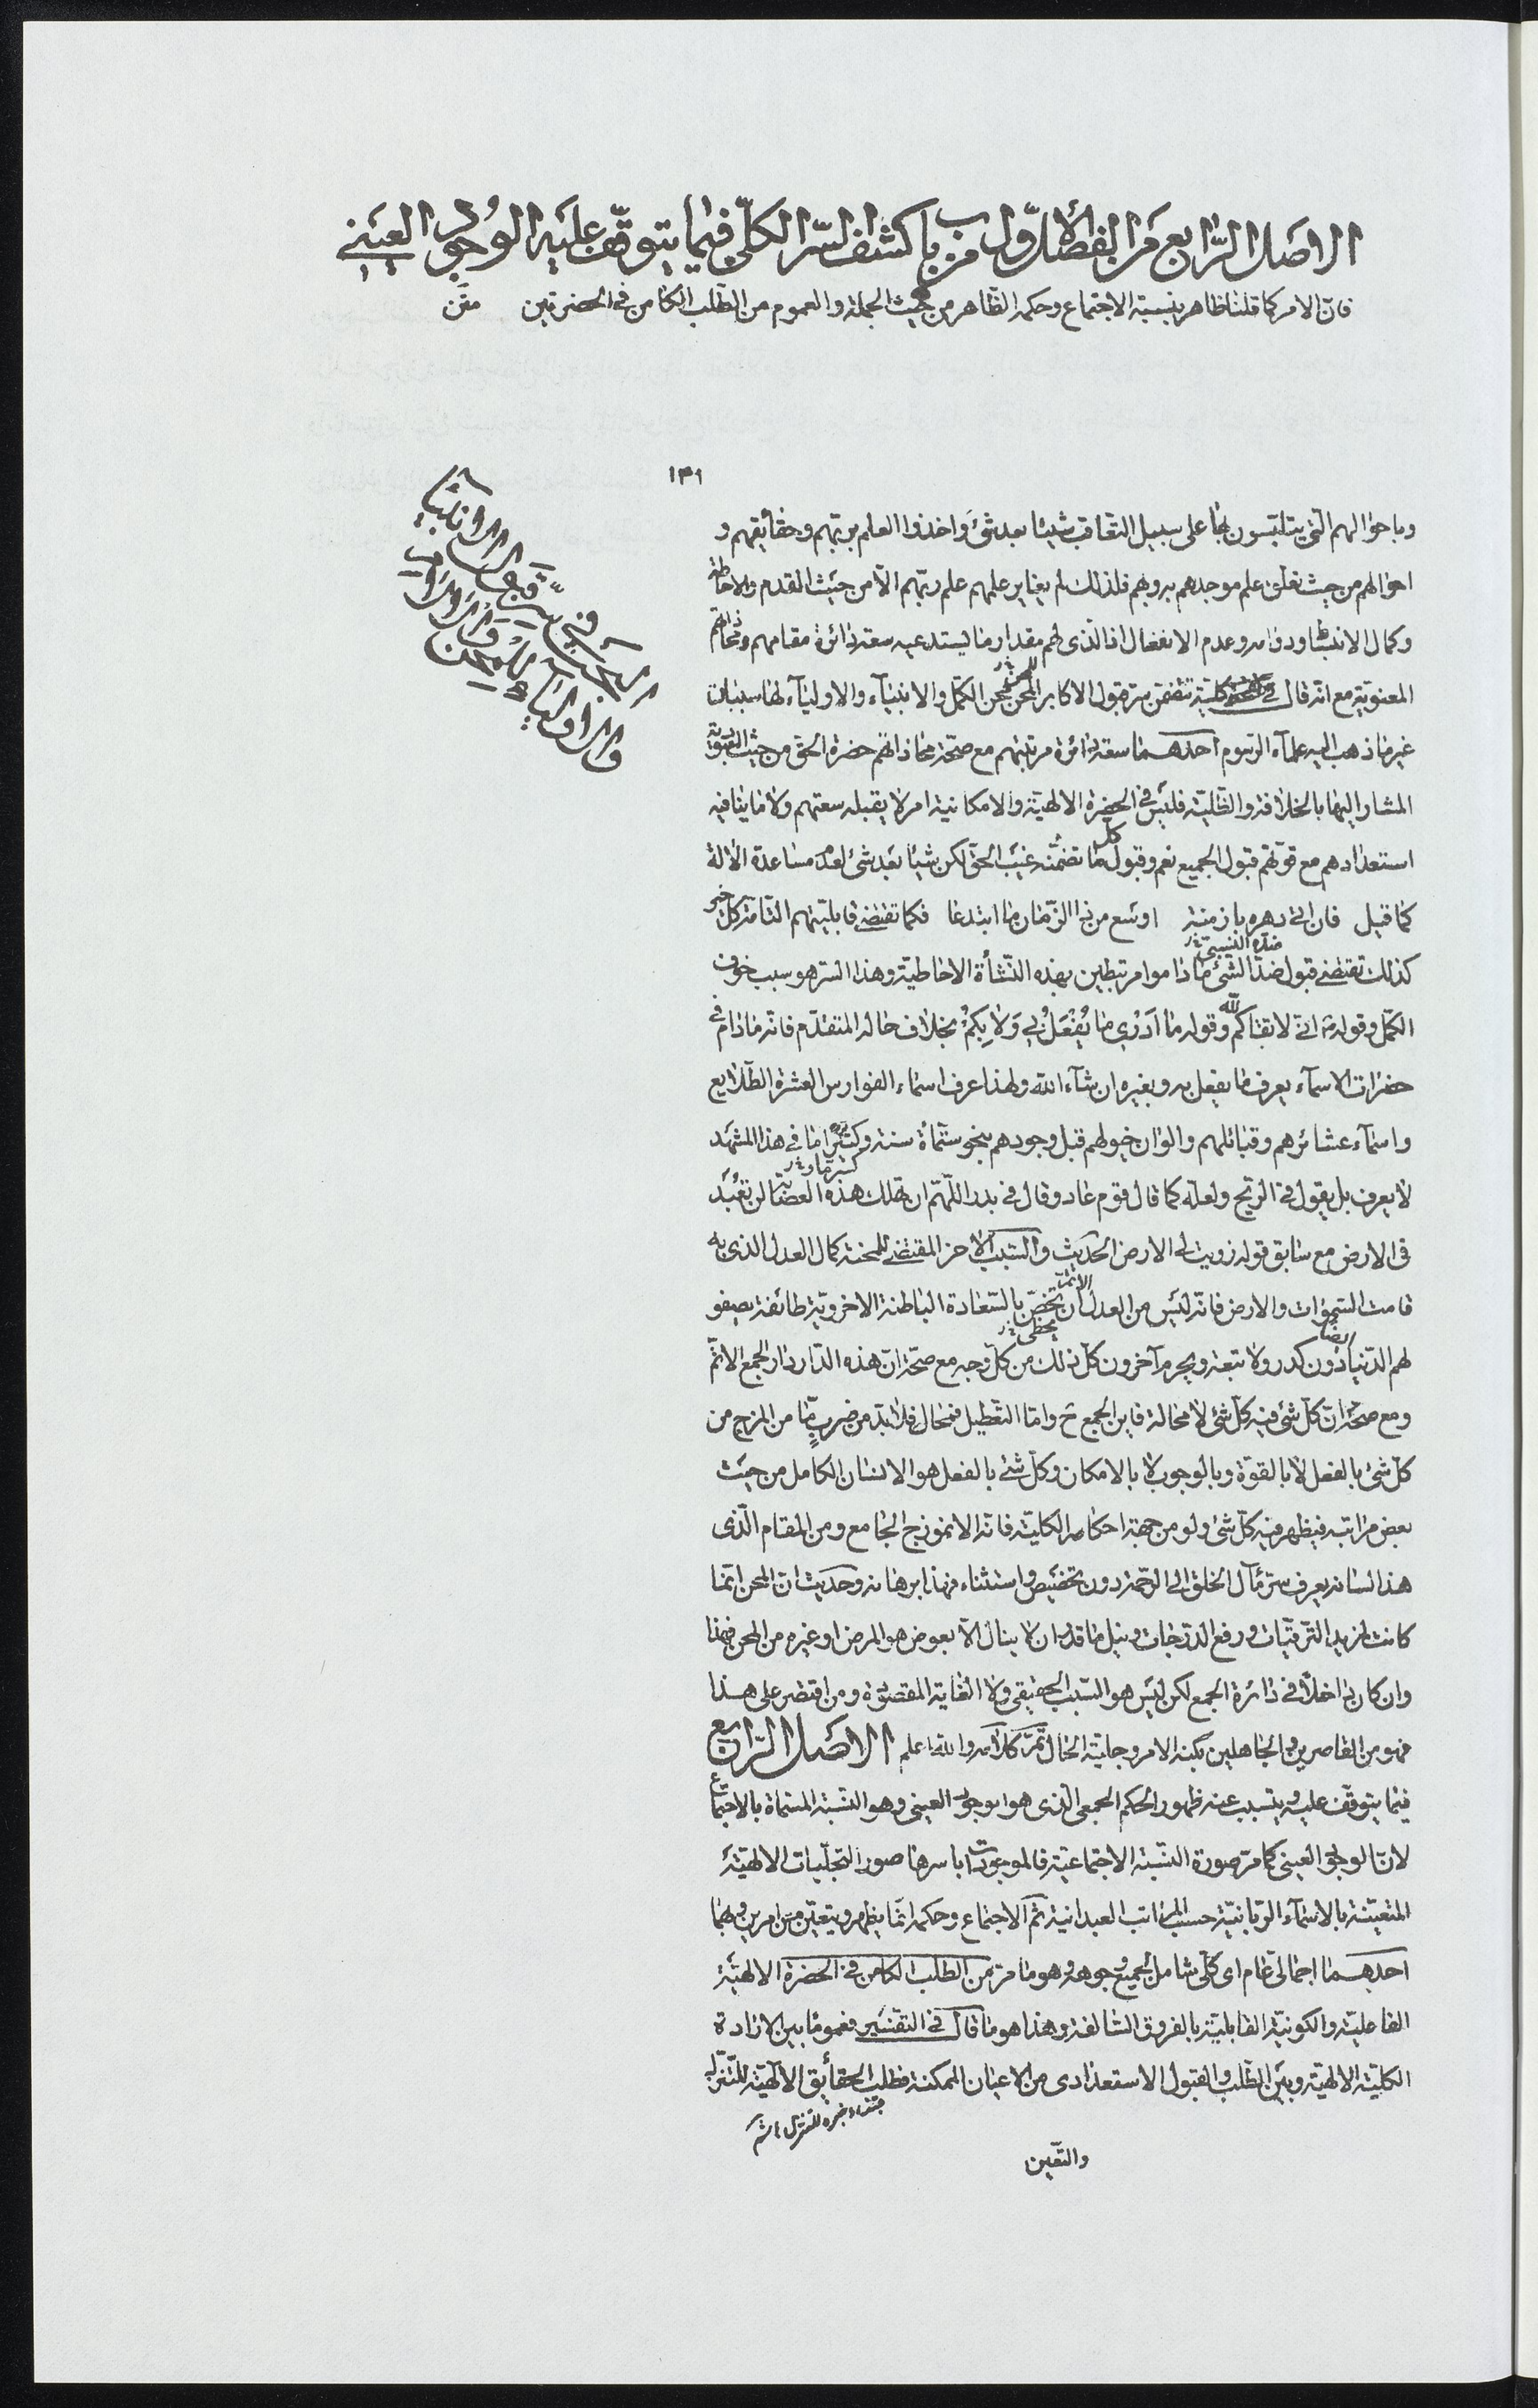 الاصل الرّابع من الفصل الاوّل من باب كشف السّر الكلّى فيما يتوقّف عليه الوجود العينى
فانّ الامر كما قلنا ظاهر بنسبة الاجتماع وحكمه الظّاهر من حيث الجملة والعموم من الطّلب الكامن فى الحضرتين متن
١٣١
وباحوالهم الّتى يتلبّسون بها على سبيل التعاقب شيئا بعد شئ واخذوا العلم بربّهم وحقائقهم و
احوالهم من حيث تعلّق علم موجدهم به وبهم فلذلك لم يغاير علمهم علم ربّهم الّا من حيث القدم والاحاطة
وكمال الانبساط ودوامه وعدم الانفعال اذ الّذى لهم مقدار ما يستدعيه سعة دائرة مقامهم ومحاذاتهم
المعنويّة مع انّه قال فى كليّة تتضمّن سرّ قبول الاكابر المحن محن الكمّل والانبياء والاولياء لها سببان
غير ما ذهب اليه علماء الرّسوم احدهما سعة دائرة مرتبتهم مع صحّة محاذاتهم حضرة الحق من حيث
المشار اليها بالخلافة والظّليّة فليس فى الحضرة الالهيّة والامكانية امر لا يقبله سعتهم ولا ما ينافيه
استعدادهم مع قوّتهم قبول الجميع نعم وقبول كل ما تضمّنه غيب الحق لكن شيئا بعد شئ لعدم مساعدة الآلة
كما قيل فان اتى دهره بازمنة اوسع من ذا الزّمان ما ابتدعا فكما تقتضى قابليّتهم التّامّة كل خير
كذلك تقتضى قبول ضدّ الشئ ماداموا مرتبطين بهذه النّشأة الاحاطيّة وهذا السرّ هو سبب خوف
الكمّل وقوله انى لاتقاكم لله وقوله ما ادرى ما يفعل بى ولا بكم بخلاف حاله المتقدّم فانّه مادام فى
حضرات الاسماء يعرف ما يفعل به وبغيره ان شاء الله ولهذا عرف اسماء الفوارس العشرة الطّلايع
واسماء عشائرهم وقبائلهم والوان خيولهم قبل وجودهم بنحو ستّمأة سنة وكثيرا ما فى هذا المشهد
لا يعرف بل يقول فى الرّيح ولعلّه كما قال قوم عاد وقال فى بدر اللّهمّ ان تهلك هذه العصابة لن تعبد
فى الارض مع سابق قوله زويت لى الارض الحديث والسّبب الآخر المقتضى للمحنة كمال العدل الذى به
قامت السّموات والارض فانّه ليس من العدل الاتمّ ان يختصّ بالسّعادة الباطنة الاخرويّة طائفة يصفو
لهم الدّنيا ايضا دون كدر ولا تبعة ويحرم آخرون كلّ ذلك من كلّ وجه مع صحّة انّ هذه الدّار دار الجمع الاتمّ
ومع صحّة انّ كلّ شئ فيه كلّ شئ لا محالة فاين الجمع ح وامّا التعطيل فمحال فلابدّ من ضربٍ مّا من المزج من
كلّ شئ بالفعل لا بالقوّة وبالوجوب لا بالامكان وكلّ شئ بالفعل هو الانسان الكامل من حيث
بعض مراتبه فيظهر فيه كلّ شئ ولو من جهة احكامه الكليّة فانّه الانموذج الجامع ومن المقام الّذى
هذا لسانه يعرف سرّ مآل الخلق الى الرّحمة دون تخصيص واستثناء فهذا برهانه وحديث انّ المحن انّما
كانت لمزيد التّرقيات ورفع الدّرجات ونيل ما قدّر ان لا ينال الّا بعوض هو المرض او غيره من المحن فهذا
وان كان داخلا فى دائرة الجمع لكن ليس هو السّبب الحقيقى ولا الغاية المقصودة ومن اقتصر على هذا
فهو من القاصرين الجاهلين بكنه الامر وجليّة الحال تمّ كلامه والله اعلم الاصل الرّابع
فيما يتوقّف عليه ويتسبب عنه ظهور الحكم الجمعى الذى هو الوجود العينى وهو النّسبة المسمّاة بالاجتماع
لانّ الوجود العينى كما مرّ صورة النّسبة الاجتماعيّة فالموجودات باسرها صور التجلّيات الالهيّة
المتعيّنة بالاسماء الربّانيّة حسب المراتب العبدانية ثمّ الاجتماع وحكمه انّما يظهر ويتعيّن من امرين وبهما
احدهما اجمالى عام اى كلّى شامل لجميع وجوهه وهو ما مرّ من الطلب الكامن فى الحضرة الالهيّة
الفاعليّة والكونيّة القابليّة بالفروق السّالفة وهذا هو ما قال فى التفسير فعموما بين الارادة
الكليّة الالهيّة وبين الطّلب والقبول الاستعدادى من الاعيان الممكنة فطلب الحقائق الالهيّة للتنزّل
والتعّين